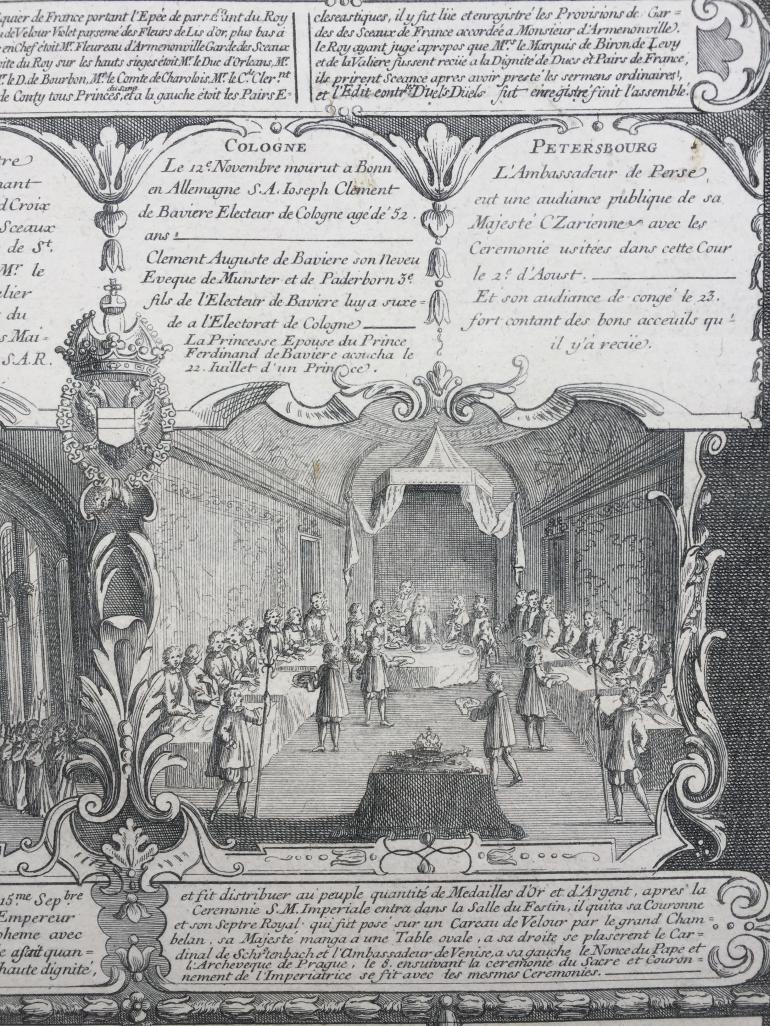 quier de France portant l'Epée de par et d'ant du Roy
de Velour Violet parsemé des Fleurs de Lis d'or, plus bas à
en Chef étoit Mr. Fleureau d'Armenonville Garde des Sceaux
oite du Roy sur les hauts sieges étoit Mr. le Duc d'Orleans, Mr.
r. le D. de Bourbon, Mr. le Comte de Charolois, Mr. le Ct. Clernt
de Conty tous Princes du sang, et a la gauche étoit les Pairs E=
cleseastiques, il y fut lüe et enregistré les Provisions de Gar=
des des Sceaux de France accordée a Monsieur d'Armenonville.
le Roy ayant jugé apropos que Mrs. le Marquis de Biron de Levy
et de la Valiere fussent recüe a la Dignité de Ducs et Pairs de France,
ils prirent Sceance apres avoir presté les sermens ordinaires,
et l'Edit contre Duels Düels fut enregistré finit l'assemblé.
tre
nant
d Croix
Sceaux
de St.
Mr. le
elier
du
s Mai=
S.A.R.
COLOGNE
Le 12e. Novembre mourut a Bonn
en Allemagne S.A. Ioseph Clement
de Baviere Electeur de Cologne agé de 52.
ans
Clement Auguste de Baviere son Neveu
Eveque de Munster et de Paderborn 3e.
fils de l'Electeur de Baviere luy a suxe=
de a l'Electorat de Cologne
La Princesse Epouse du Prince
Ferdinand de Baviere acoucha le
22. Iuillet d'un Prince.
PETERSBOURG
L'Ambassadeur de Perse,
eut une audiance publique de sa
Majesté CZarienne avec les
Ceremonie usitées dans cette Cour
le 2e. d'Aoust.
Et son audiance de congé le 23.
fort contant des bons acceuils qu'
il y'á recüe.
15me Sepbre
Empereur
oheme avec
quan=
haute dignité,
et fit distribuer au peuple quantité de Medailles d'Or et d'Argent, apres la
Ceremonie S.M. Imperiale entra dans la Salle du Festin, il quita sa Couronne
et son Septre Royal qui fut posé sur un Careau de Velour par le grand Cham=
belan, sa Majeste manga a une Table ovale, a sa droite se plaserent le Car=
dinal de Schrtenbach et l'Ambassadeur de Venise, a sa gauche le Nonce du Pape et
l'Archeveque de Prague, le 8. ensuivant la ceremonie du Sacre et Couron=
nement de l'Imperiatrice se fit avec les mesmes Ceremonies.